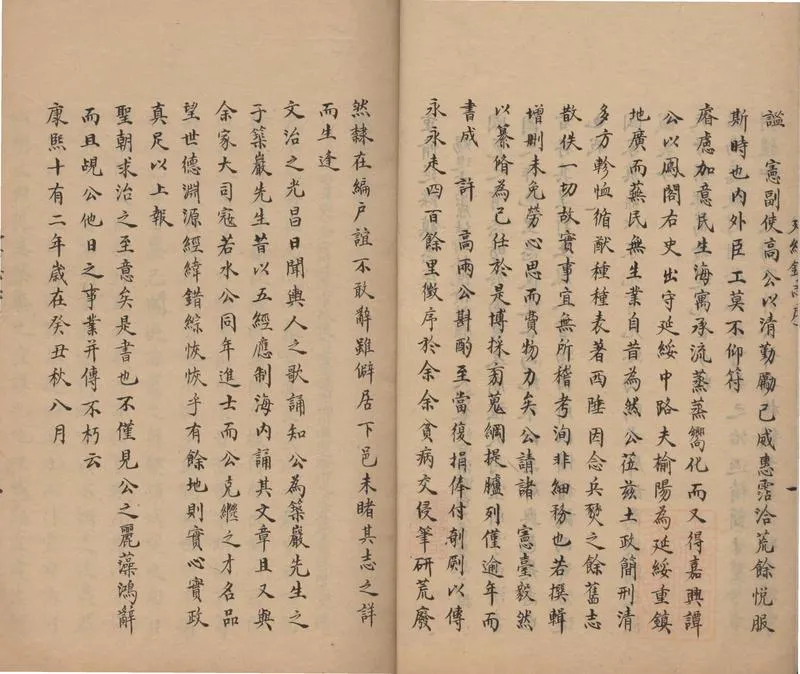 謐　憲副使高公以清勤勵己威惠霑洽荒餘悅服
斯時也内外臣工莫不仰符
睿慮加意民生海寓承流蒸蒸嚮化而又得嘉興譚
公以鳳閣右史出守延綏中路夫榆陽為延綏重鎮
地廣而蕪民無生業自昔為然公莅兹土政簡刑清
多方軫恤循猷種種表著西陲因念兵燹之餘舊志
散佚一切故實事宜無所稽考洵非細務也若撰輯
增刪未免勞心思而費物力矣公請諸　憲臺毅然
以纂脩為己任於是博採𣃟蒐綱提臚列僅逾年而
書成　許　高兩公斟酌至當復捐俸付剞劂以傳
永永走四百餘里徵序於余余貧病交侵筆研荒廢
然隷在編户誼不敢辭雖僻居下邑未睹其志之詳
而生逢
文治之光昌日聞輿人之歌誦知公為築巖先生之
子築巖先生昔以五經應制海内誦其文章且又與
余家大司寇若水公同年進士而公克繼之才名品
望世德淵源經緯錯綜恢恢乎有餘地則實心實政
真足以上報
聖朝求治之至意矣是書也不僅見公之麗藻鴻辭
而且覘公他日之事業并傳不朽云
康熙十有二年歲在癸丑秋八月